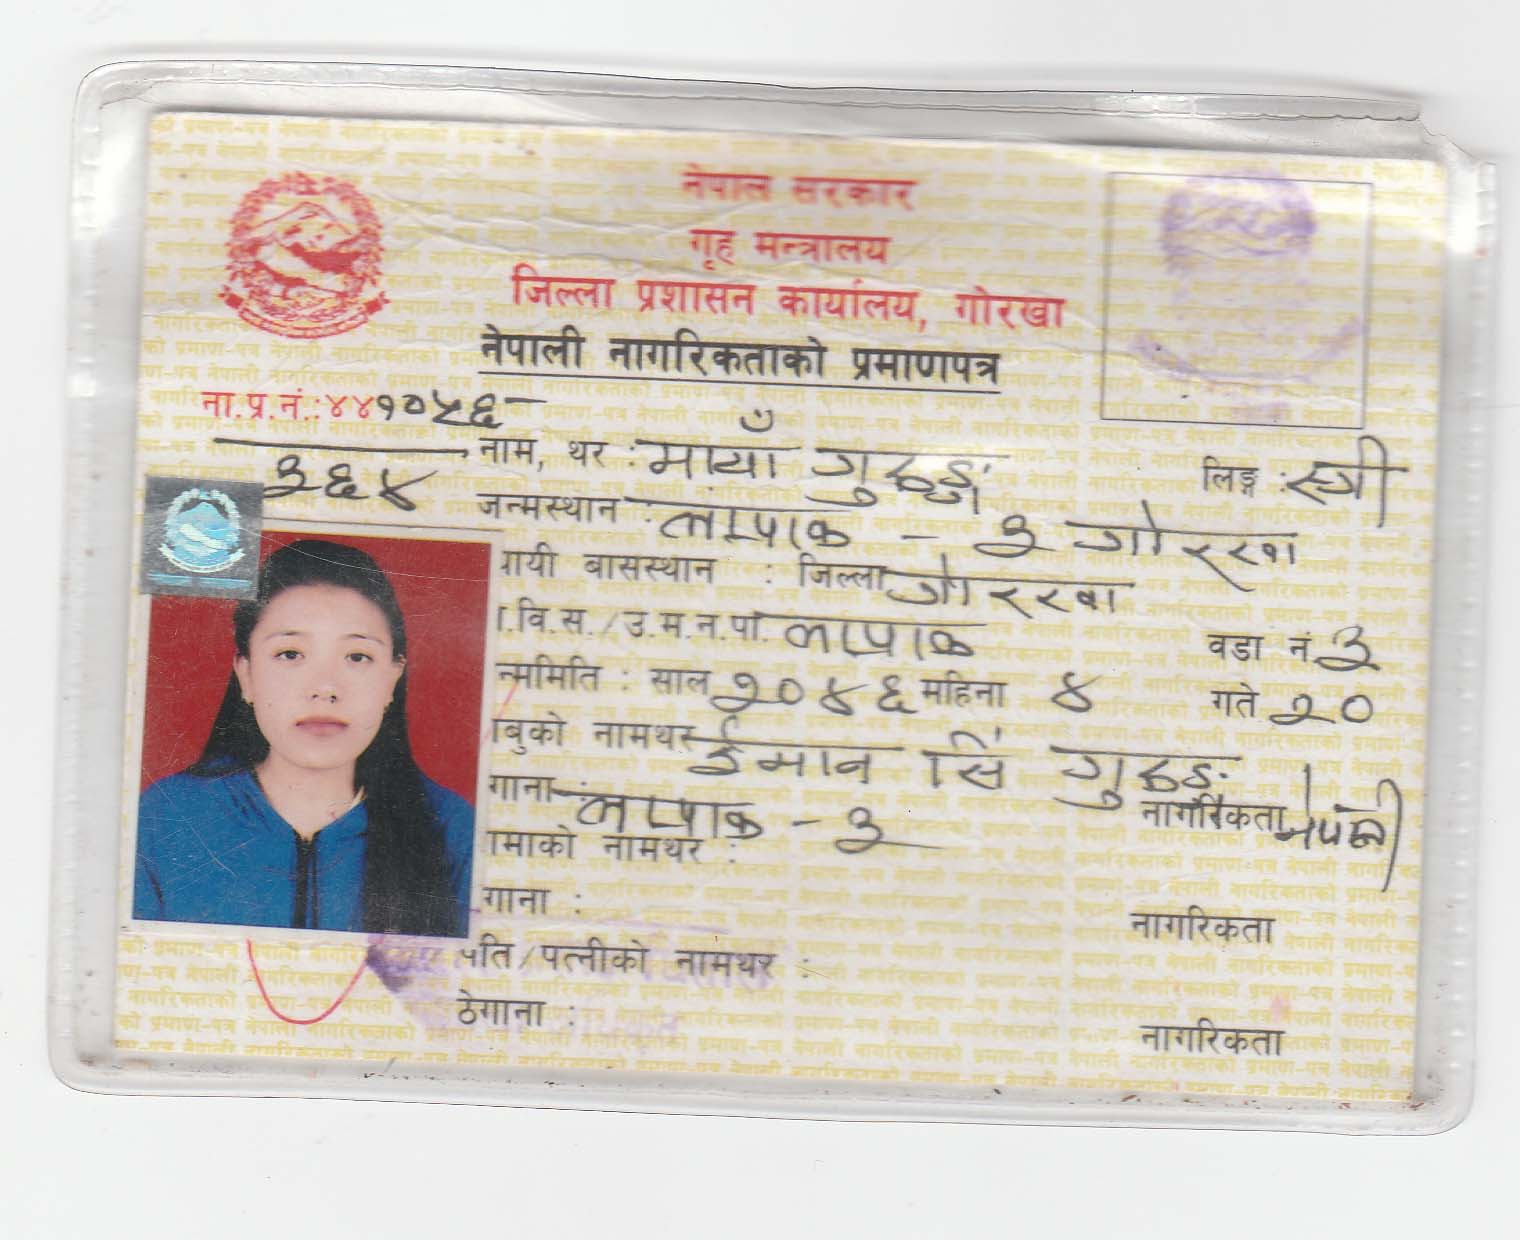 नेपाल सरकार
गृह मन्त्रालय
जिल्ला प्रशासन कार्यालय, गोरखा
नेपाली नागरिकताको प्रमाणपत्र
ना.प्र.नं.:४४१०५६
३६४
नाम, थर : माया गुरुङ्ग लिङ्ग : स्त्री
जन्मस्थान : लाप्राक - ३ गोरखा
ायी बासस्थान : जिल्ला गोरखा
.वि.स./उ.म.न.पा. लाप्राक वडा नं ३
न्ममिति : साल २०४६ महिना ४ गते २०
ाबुको नामथर ईमान सिं गुरुङ
गाना लाप्राक - ३ नागरिकता नेपाली
ामाको नामथर :
गाना : नागरिकता
पति/पत्नीको नामथर :
ठेगाना : नागरिकता